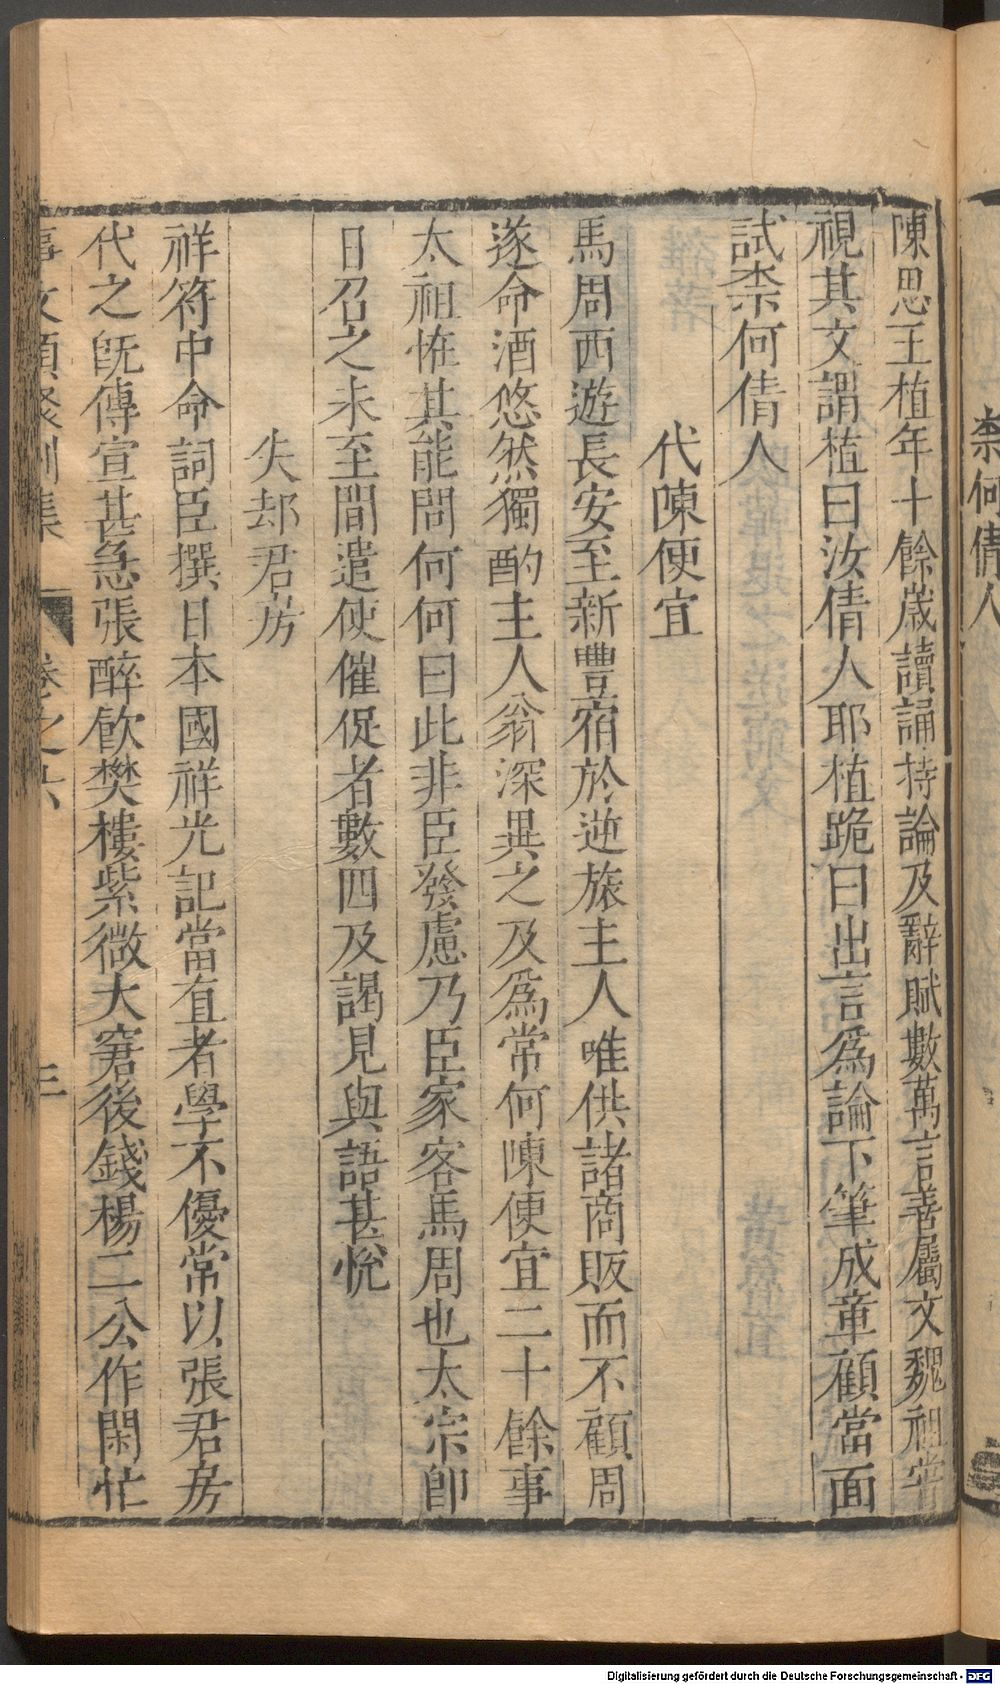 柰何倩人
陳思王植年十餘歲讀誦持論及辭賦數萬言善屬文魏祖嘗
視其文謂植曰汝倩人耶植跪曰出言為論下筆成章顧當面
試柰何倩人
代陳便宜
馬周西遊長安至新豐宿於逆旅主人唯供諸商販而不顧周
遂命酒悠然獨酌主人翁深異之及為常何陳便宜二十餘事
太祖恠其能問何何曰此非臣發慮乃臣家客馬周也太宗即
日召之未至間遣使催促者數四及謁見與語甚悅
失却君房
祥符中命詞臣撰日本國祥光記當直者學不優常以張君房
代之旣傳宣甚急張醉飲樊樓紫微大窘後錢楊二公作閑忙
事文類聚別集 卷之六 三
Digitalisierung gefördert durch die Deutsche Forschungsgemeinschaft - DFG